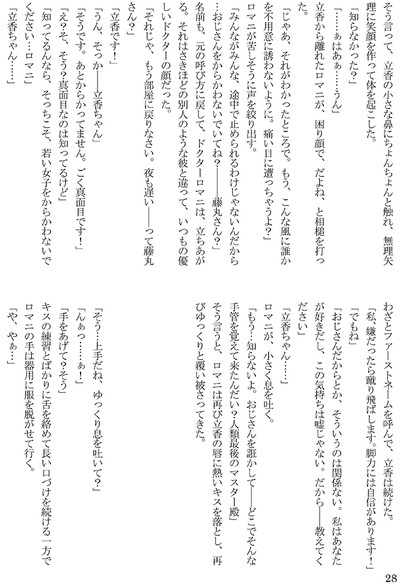 そう言って、立香の小さな鼻にちょんちょんと触れ、無理矢
理に笑顔を作って体を起こした。
「知らなかった？」
「……ぁはぁ……うん」
立香から離れたロマニが、困り顔で、だよね、と相槌を打っ
た。
「じゃあ、それがわかったところで。もう、こんな風に誰か
を不用意に誘わないように。痛い目に遭っちゃうよ？」
ロマニが苦しそうに声を絞り出す。
「みんながみんな、途中で止められるわけじゃないんだから
…おじさんをからかわないでいてね？――藤丸さん？」
名前も、元の呼び方に戻して、ドクターロマニは、立ちあが
る。それはさきほどの別人のような彼と違って、いつもの優
しいドクターの顔だった。
「それじゃ、もう部屋に戻りなさい。夜も遅い――って藤丸
さん？」
「立香です！」
「うん、そっか――立香ちゃん」
「そうです。あとからかってません。ごく真面目です！」
「え？そ、そう？真面目なのは知ってるけど」
「知ってるんなら、そっちこそ、若い女子をからかわないで
ください…ロマニ」
「立香ちゃん……」
わざとファーストネームを呼んで、立香は続けた。
「私、嫌だったら蹴り飛ばします。脚力には自信があります！」
「でもね」
「おじさんだからとか、そういうのは関係ない。私はあなた
が好きだし、この気持ちは嘘じゃない。だから――教えてく
ださい」
「立香ちゃん……」
ロマニが、小さく息を吐く。
「もう…知らないよ。おじさんを誑かして――どこでそんな
手管を覚えて来たんだい？人類最後のマスター殿」
そう言うと、ロマニは再び立香の唇に熱いキスを落とし、再
びゆっくりと覆い被さってきた。
「そう…上手だね、ゆっくり息を吐いて？」
「んぁっ……ぁ！」
「手をあげて？そう」
キスの練習とばかりに舌を絡めて長い口づけを続ける一方で
ロマニの手は器用に服を脱がせて行く。
「や、やぁ…」
28